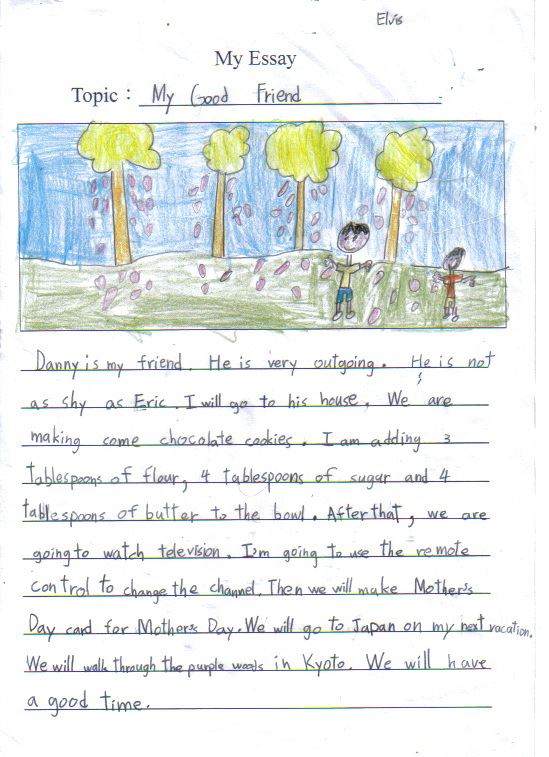 Elvis
My Essay
Topic : My Good Friend
Danny is my friend. He is very outgoing. He is not
as shy as Eric. I will go to his house. We are
making come chocolate cookies. I am adding 3
tablespoons of flour, 4 tablespoons of sugar and 4
tablespoons of butter to the bowl. After that, we are
going to watch television. I'm going to use the remote
control to change the channel. Then we will make Mother's
Day card for Mother's Day. We will go to Japan on my next vacation.
We will walk through the purple woods in Kyoto. We will have
a good time.